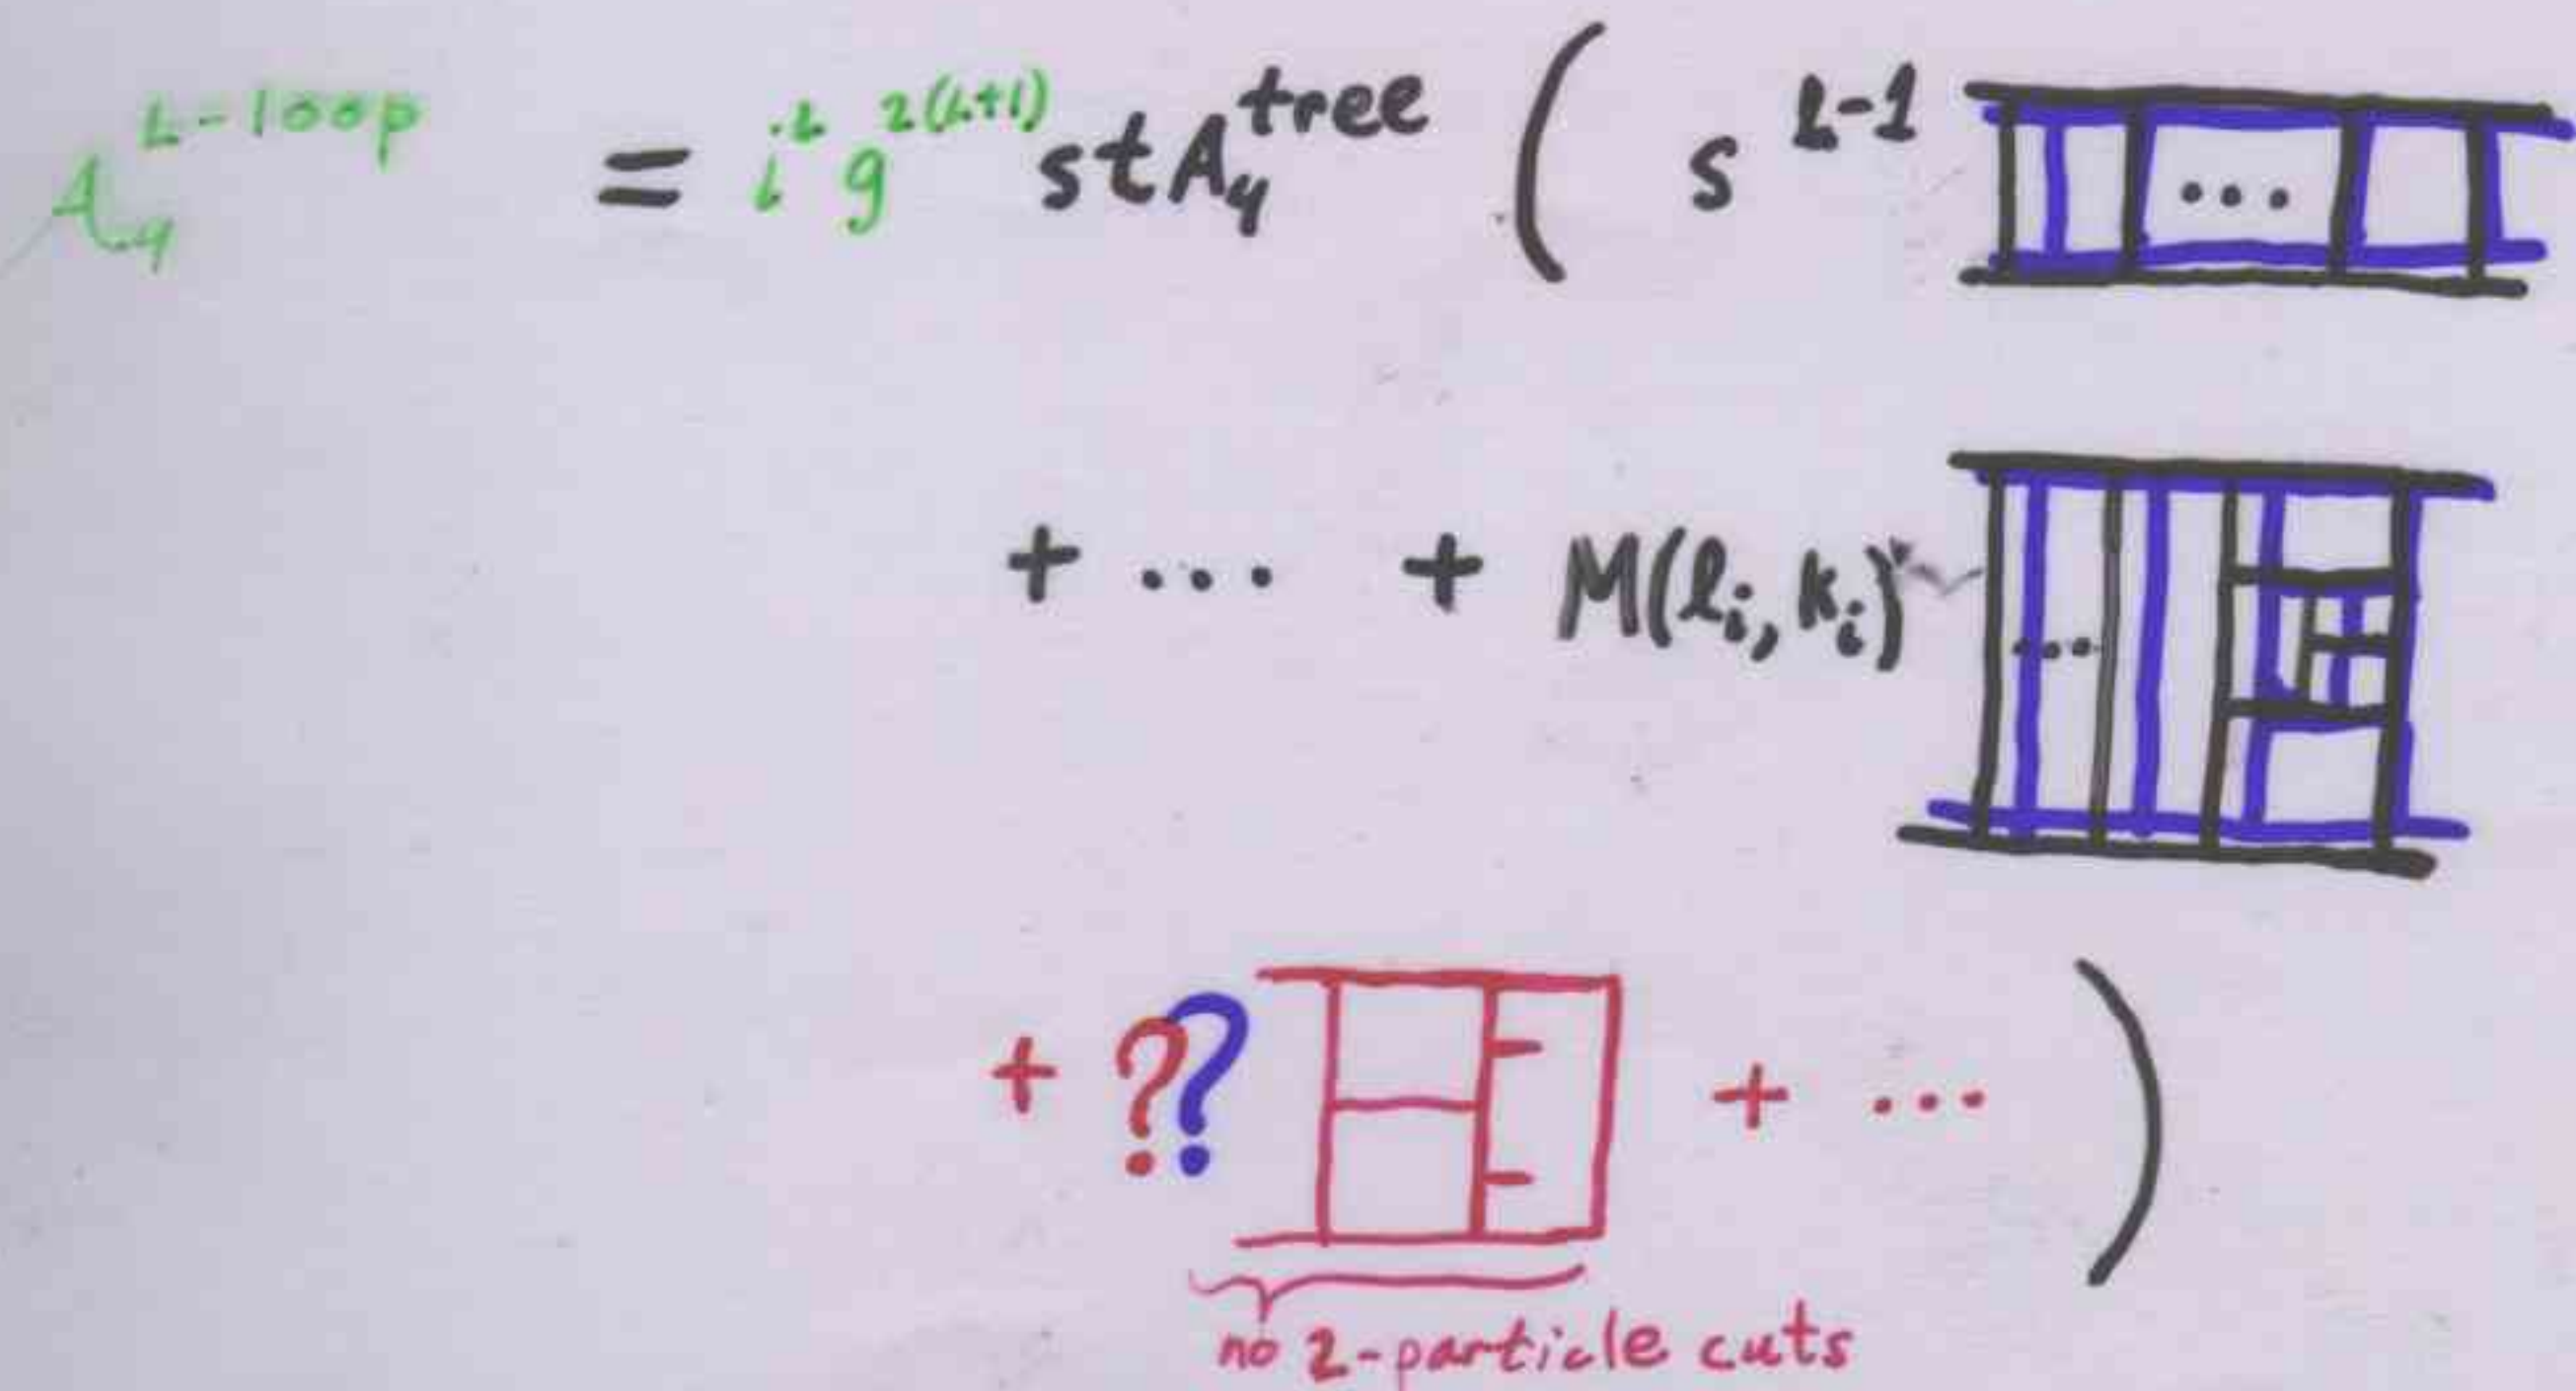 A₄^{L-loop} = i^L g^{2(L+1)} s t A₄^{tree} ( s^{L-1} ...
+ ... + M(l_i, k_i)
+ ?? + ... )
no 2-particle cuts